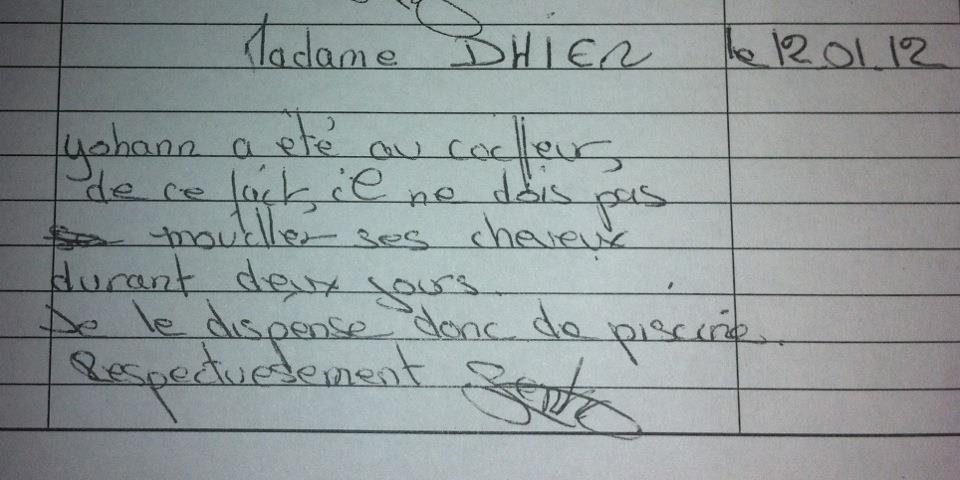 Madame DHIER le 12.01.12
Yohann a été au coiffeur,
de ce fait, il ne dois pas
mouiller ses cheveux
durant deux jours.
Je le dispense donc de piscine.
Respectuesement